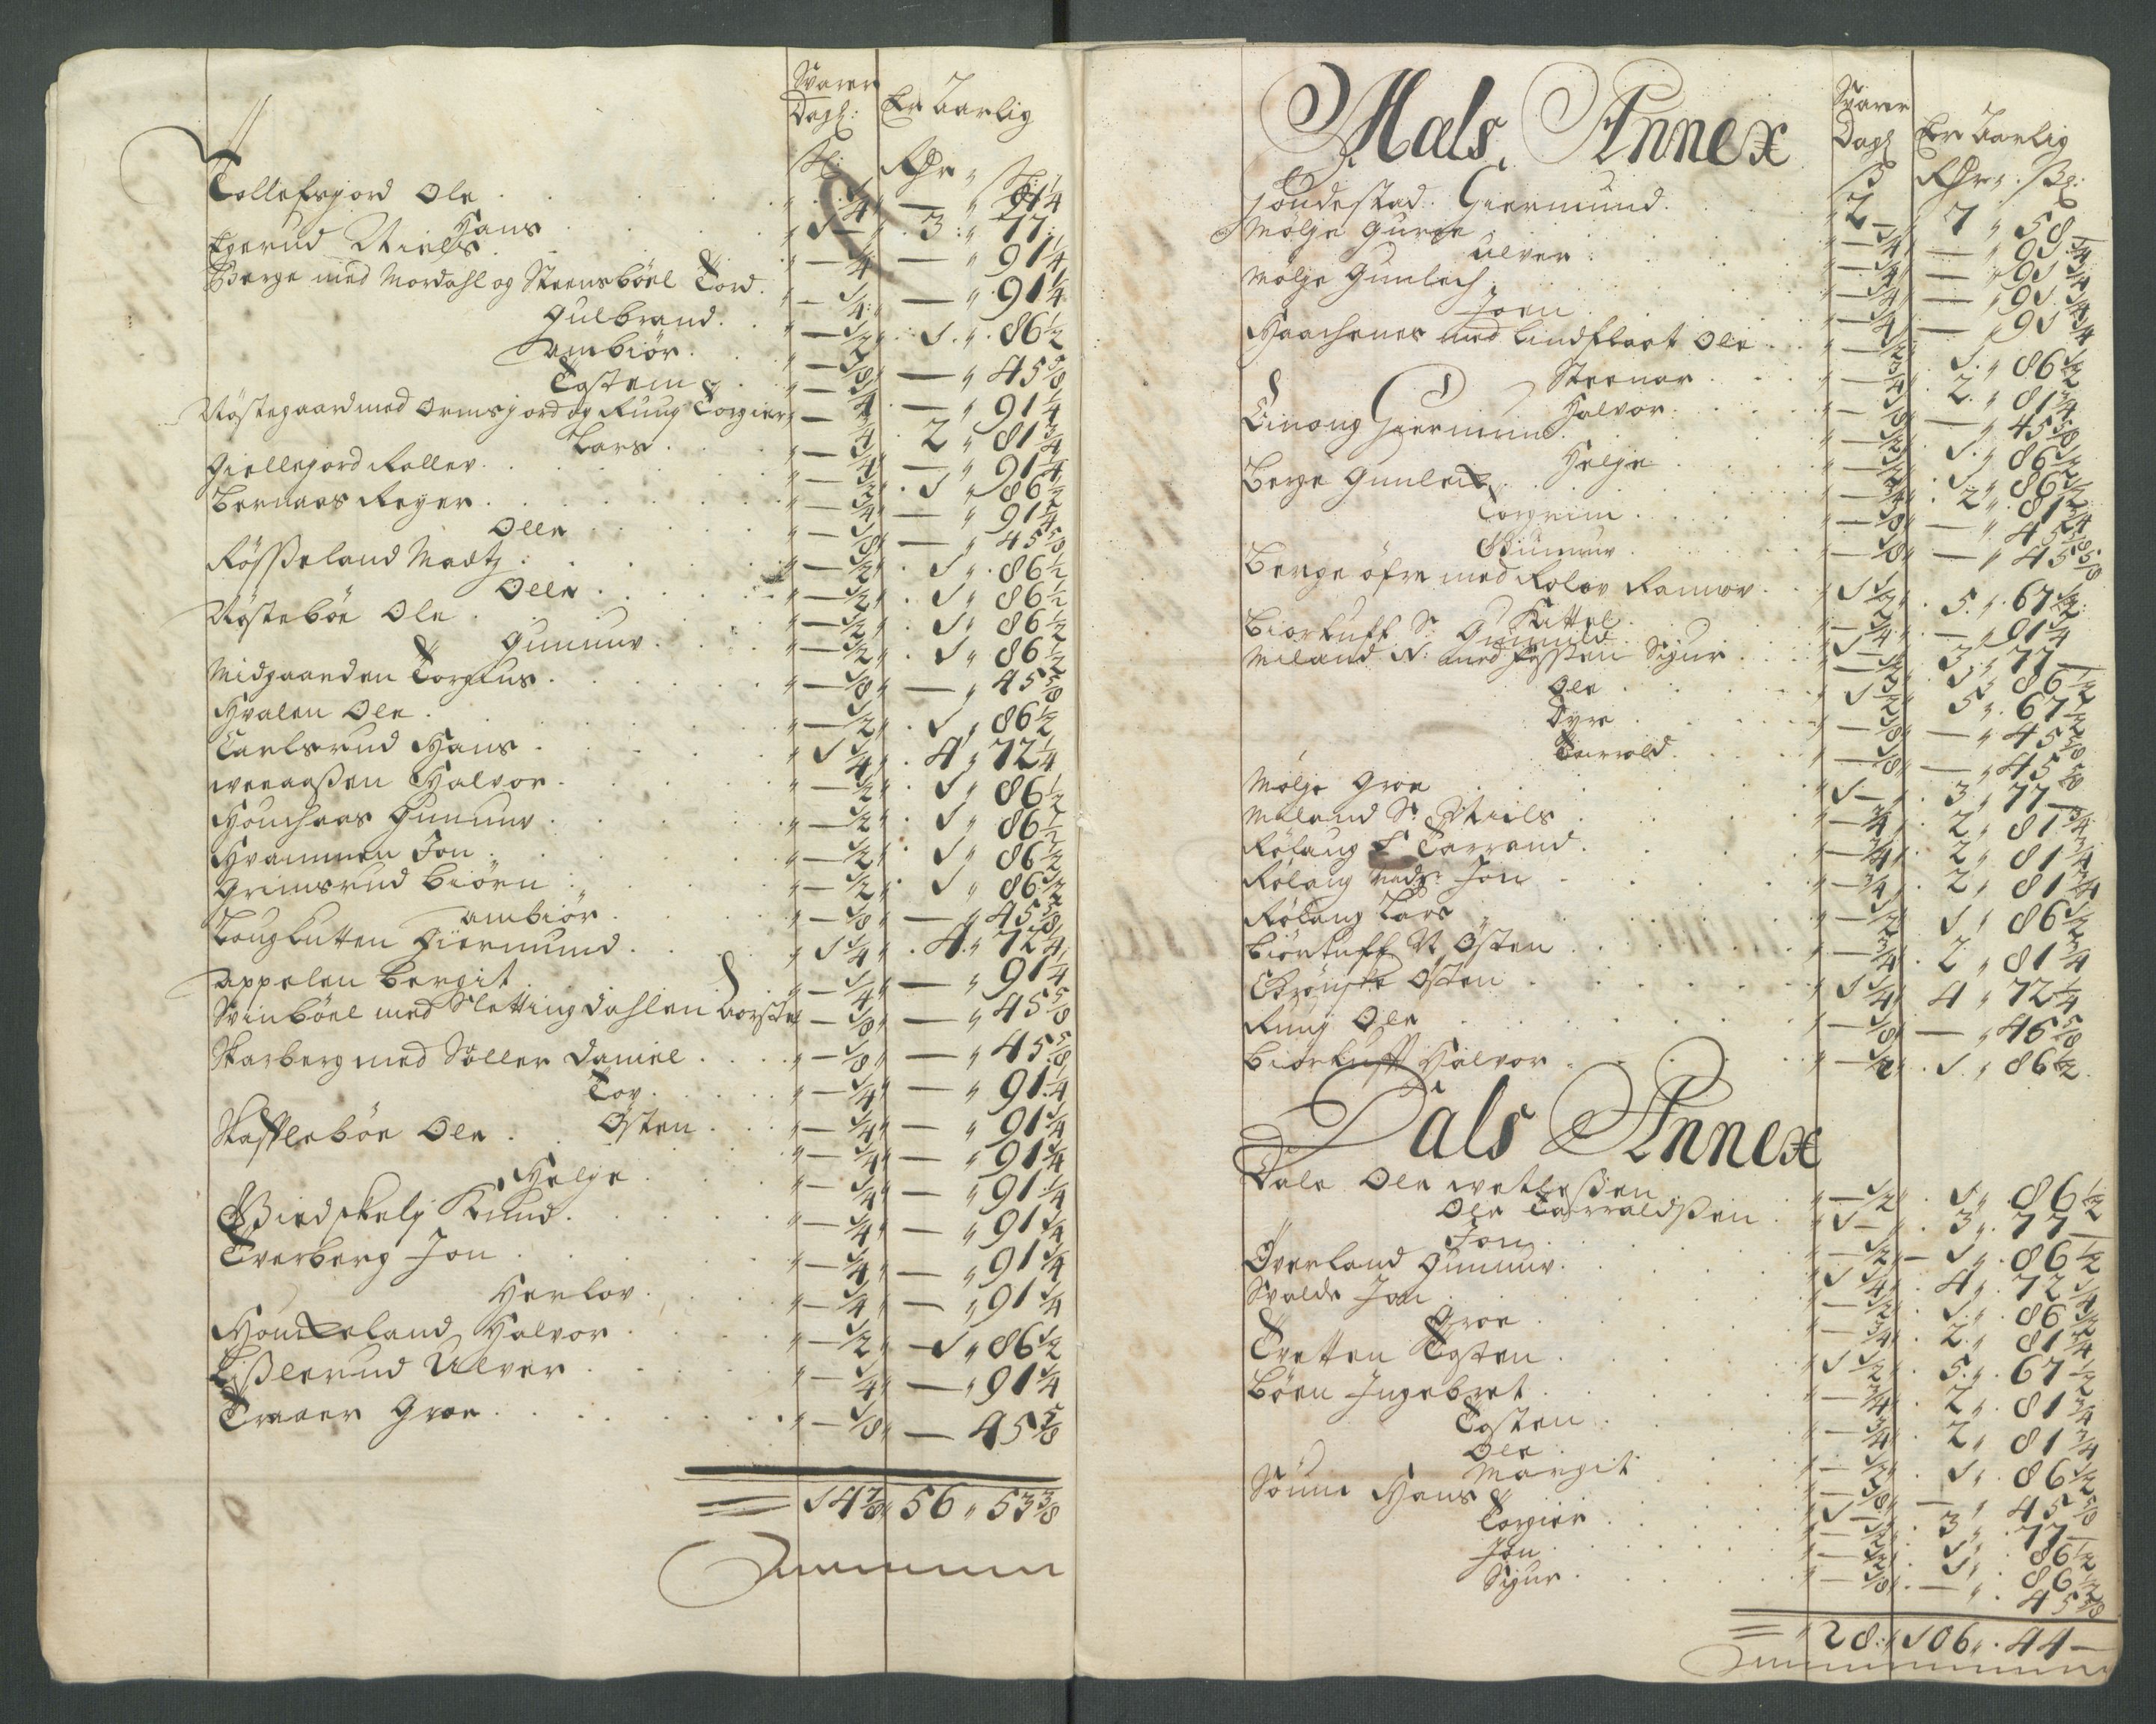 Svarer
Dagl: Er Aarlig
ß: Rdr „ ß:
Tollefsjord Ole . „ — 1/4 „ — „ 91 1/4
Hans . „ 1 — „ 3 „ 77
Egerud Niels . „ — 1/4 „ — „ 91 1/4
Berge med Mordahl og Steensböel Tord . „ — 1/4 „ — „ 91 1/4
Gulbrand . „ — 1/2 „ 1 „ 86 1/2
Ambiör . „ — 1/8 „ — „ 45 5/8
Tosten . „ — 1/4 „ — „ 91 1/4
Nöstegaard med Ormsjord og Ruug Torgier „ — 3/4 „ 2 „ 81 3/4
Lars . „ — 1/4 „ — „ 91 1/4
Giellejord Rollev . „ — 1/2 „ 1 „ 86 1/2
Bernaas Reyer . „ — 1/4 „ — „ 91 1/4
Olle . „ — 1/8 „ — „ 45 5/8
Rösseland Madtz . „ — 1/2 „ 1 „ 86 1/2
Olle . „ — 1/2 „ 1 „ 86 1/2
Nösteböe Ole . „ — 1/2 „ 1 „ 86 1/2
Gunnuv . „ — 1/2 „ 1 „ 86 1/2
Midgaarden Torgius . „ — 1/8 „ — „ 45 5/8
Hvalen Ole . „ — 1/2 „ 1 „ 86 1/2
Carlsrud Hans . „ 1 1/4 „ 4 „ 72 1/4
Halvor . „ — 1/2 „ 1 „ 86 1/2
Houchaas Gunnuv . „ — 1/2 „ 1 „ 86 1/2
Hvammen Jon . „ — 1/2 „ 1 „ 86 1/2
Grimsrud Biörn . „ — 1/2 „ 1 „ 86 1/2
Ambiör . „ — 1/8 „ — „ 45 5/8
Giermund . „ 1 1/4 „ 4 „ 72 1/4
Appelen Bergit . „ — 1/4 „ — „ 91 1/4
Svinböel med Slettingdahlen „ — 1/8 „ — „ 45 5/8
Skarberg med Söller Daniel . „ — 1/8 „ — „ 45 5/8
Tov . „ — 1/4 „ — „ 91 1/4
Östen . „ — 1/4 „ — „ 91 1/4
Skaffleböe Ole . „ — 1/4 „ — „ 91 1/4
Helge . „ — 1/4 „ — „ 91 1/4
Knud . „ — 1/4 „ — „ 91 1/4
Tverberg Jon . „ — 1/4 „ — „ 91 1/4
Herlov . „ — 1/4 „ — „ 91 1/4
Houxeland Halvor . „ — 1/2 „ — 1 „ 86 1/2
Lisslerud Ulver . „ — 1/4 „ — „ 91 1/4
Traaer Groe . „ — 1/8 „ — 45 5/8
14 7/8 „ 56 „ 53 3/8
Mals Annex
Svarer
Dagl Er Aarlig
ß Rdr „ ß:
Söndestad . Giermund . „ 2 — „ 7 „ 58 —
Mölje Guroe . „ — 1/4 „ — „ 91 1/4
Ulver . „ — 1/4 „ — „ 91 1/4
Mölje Gunlech . „ — 1/4 „ — „ 91 1/4
Joen . „ — 1/4 „ — „ 91 1/4
Haachenes med Lindflaat Ole . „ — 1/2 „ 1 „ 86 1/2
Steenar . „ — 3/4 „ 2 „ 81 3/4
Halvor . „ — 1/8 „ — „ 45 5/8
Einong Giermund . „ — 1/2 „ 1 „ 86 1/2
Helge . „ — 1/2 „ 1 „ 86 1/2
Berge Gunleix . „ — 3/4 „ 2 „ 81 3/4
Torgrim . „ — 1/8 „ — „ 45 5/8
Gunnuv . „ — 1/8 „ — „ 45 5/8
Berge öfre med Rolav Ramov . „ 1 1/2 „ 5 „ 67 1/2
Kittel
Biortuft S: Gunnild . „ — 1/4 „ — „ 91 1/4
Miland N: med Fossen Sijur . „ 1 — „ 3 „ 77 —
Ole . „ — 1/2 „ 1 „ 86 1/2
Tyre . „ 1 1/2 „ 5 „ 67 1/2
Tarrald . „ — 1/8 „ — „ 45 5/8
„ — 1/8 „ — „ 45 5/8
Mölje Groe . „ 1 — „ 3 „ 77 —
Miland S: Niels . „ — 3/4 „ 2 „ 81 3/4
Rölaug S: Tarrand . „ — 3/4 „ 2 „ 81 3/4
Rölaug neds: Jon . „ — 3/4 „ 2 „ 81 3/4
Rölaug Lars . „ — 1/2 „ 1 „ 86 1/2
Biörtuft N Östen . „ — 3/4 „ 2 „ 81 3/4
Östen . „ 1 1/4 „ 4 „ 72 1/4
Ruug Ole . „ — 1/8 „ — „ 46 5/8
Biortuft Halvor . „ — 1/2 „ 1 „ 86 1/2
Dals Annex
Dale Ole Vetlessen . „ — 1/2 „ 1 „ 86 1/2
Ole Tarraldssen . „ 1 — „ 3 „ 77 —
Jon . „ — 1/2 „ — 1 „ 86 1/2
Överland Gunnuv . „ 1 1/4 „ 4 „ 72 1/4
Svalde Jon . „ — 1/2 „ 1 „ 86 1/2
Groe . „ — 3/4 „ 2 „ 81 3/4
Tvetten Tosten . „ 1 1/2 „ 5 „ 67 1/2
Böen Ingebret . „ — 3/4 „ 2 „ 81 3/4
Tosten . „ — 3/4 „ 2 „ 81 3/4
Ole . „ — 1/2 „ 1 „ 86 1/2
Margit „ — 1/8 „ — „ 45 5/8
Hans „ 1 — „ 3 „ 77 —
Torgier . „ — 1/2 „ 1 „ 86 1/2
Jon . „ — 1/2 „ 1 „ 86 1/2
Sijur . „ — 1/8 „ — „ 45 5/8
28 „ 106 „ 44 —